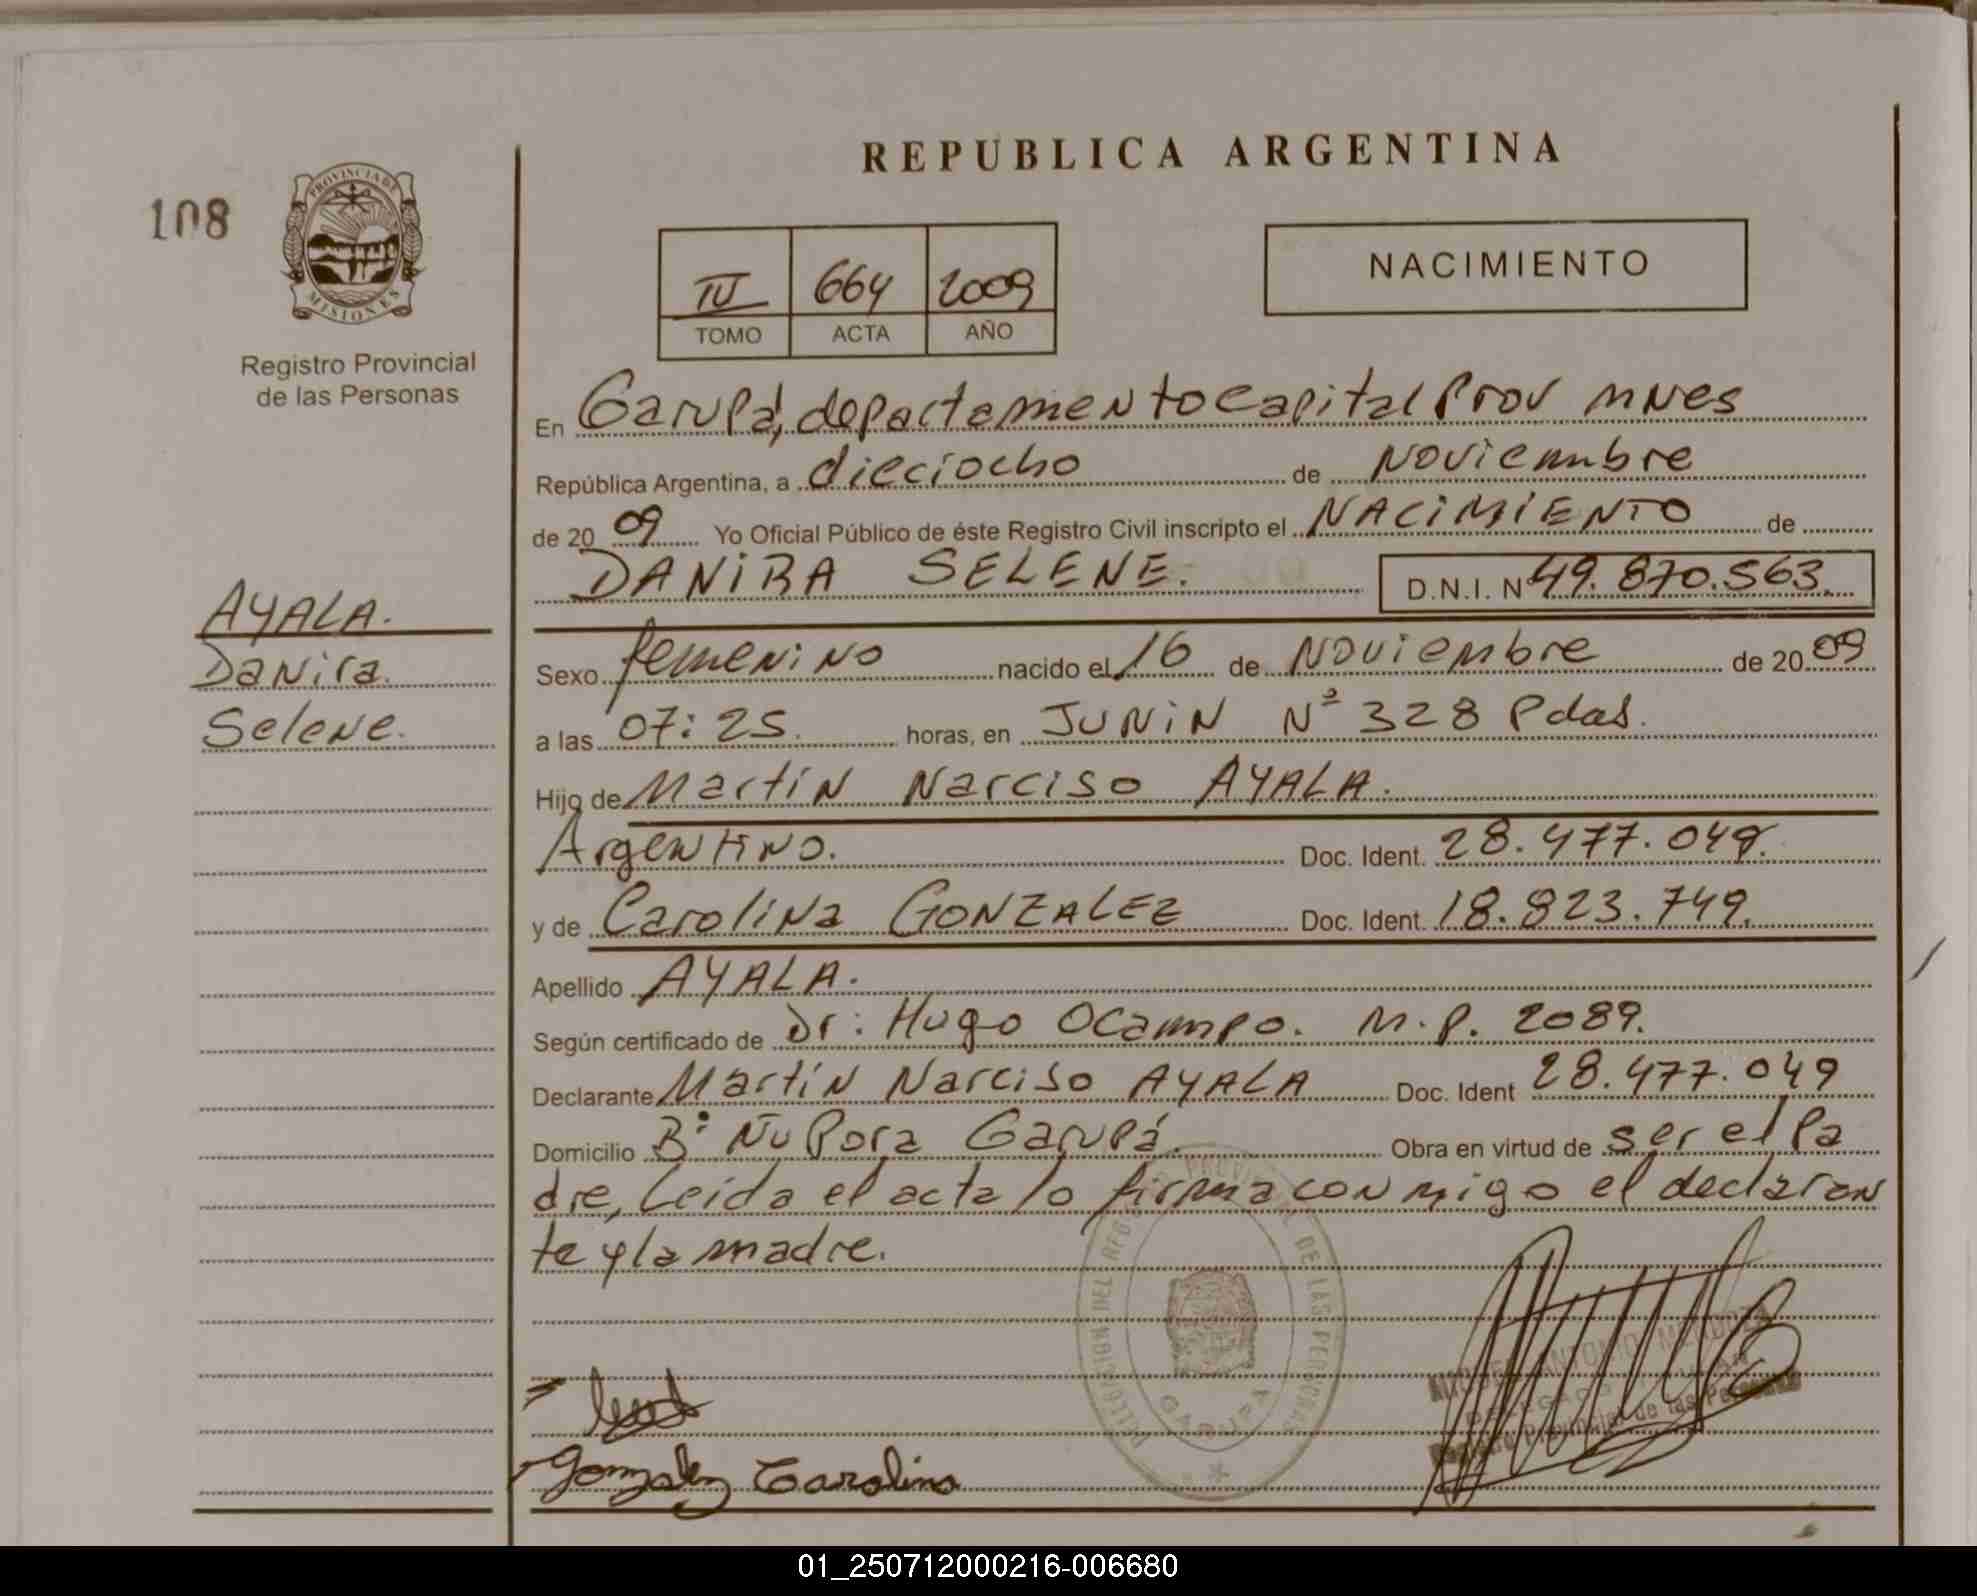 REPUBLICA ARGENTINA
108
PROVINCIA DE
MISIONES
Registro Provincial
de las Personas
IV 664 2009
TOMO ACTA AÑO
NACIMIENTO
En Garupá, departamento Capital Prov Mnes
República Argentina, a dieciocho de Noviembre
de 20 09 Yo Oficial Público de éste Registro Civil inscripto el NACIMIENTO de
DANIRA SELENE. D.N.I. Nº 49.870.563.
AYALA.
Danira.
Selene.
Sexo femenino nacido el 16 de Noviembre de 20 09
a las 07:25. horas, en JUNIN Nº 328 Pdas.
Hijo de Martín Narciso AYALA.
Argentino. Doc. Ident. 28.477.049.
y de Carolina GONZALEZ Doc. Ident. 18.823.749.
Apellido AYALA.
Según certificado de Dr: Hugo Ocampo. M.P. 2089.
Declarante Martín Narciso AYALA Doc. Ident 28.477.049
Domicilio Bº Ñu Pora Garupá. Obra en virtud de ser el Pa
dre, Leída el acta lo firma conmigo el declaran
te y la madre.
DELEGACION DEL REGISTRO PROVINCIAL DE LAS PERSONAS
GARUPA
ANTONIO MENDOZA
Registro Provincial de las Personas
Gonzalez Carolina
01_250712000216-006680